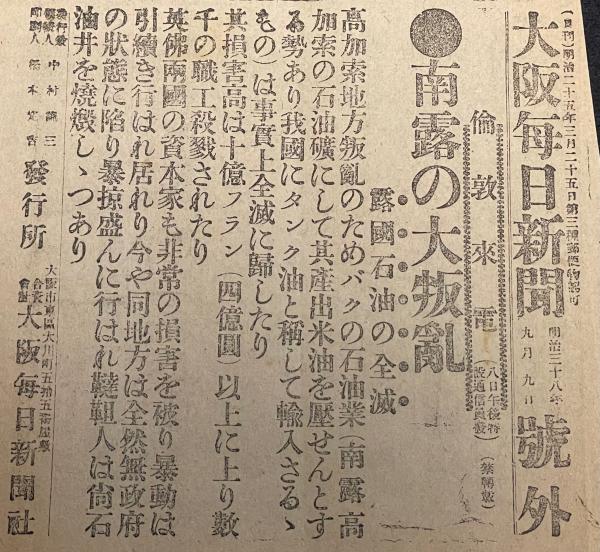 (日刊)明治二十五年三月二十五日第三種郵便物認可
大阪每日新聞 明治三十八年九月九日 號外
倫敦來電 (八日午後特設通信員發) (禁轉載)
●南露の大叛亂
露國石油の全滅
高加索地方叛亂のためバクの石油業(南露高
加索の石油礦にして其產出米油を壓せんとす
る勢あり我國にタンク油と稱して輸入さるゝ
もの)は事實上全滅に歸したり
其損害高は十億フラン(四億圓)以上に上り數
千の職工殺戮されたり
英佛兩國の資本家も非常の損害を被り暴動は
引續き行はれ居れり今や同地方は全然無政府
の狀態に陷り暴掠盛んに行はれ韃靼人は尙石
油井を燒燬しゝつあり
發行兼編輯人 中村 三
印刷人 橋本
發行所 大阪市東區大川町五拾五番屋敷 合資會社 大阪每日新聞社